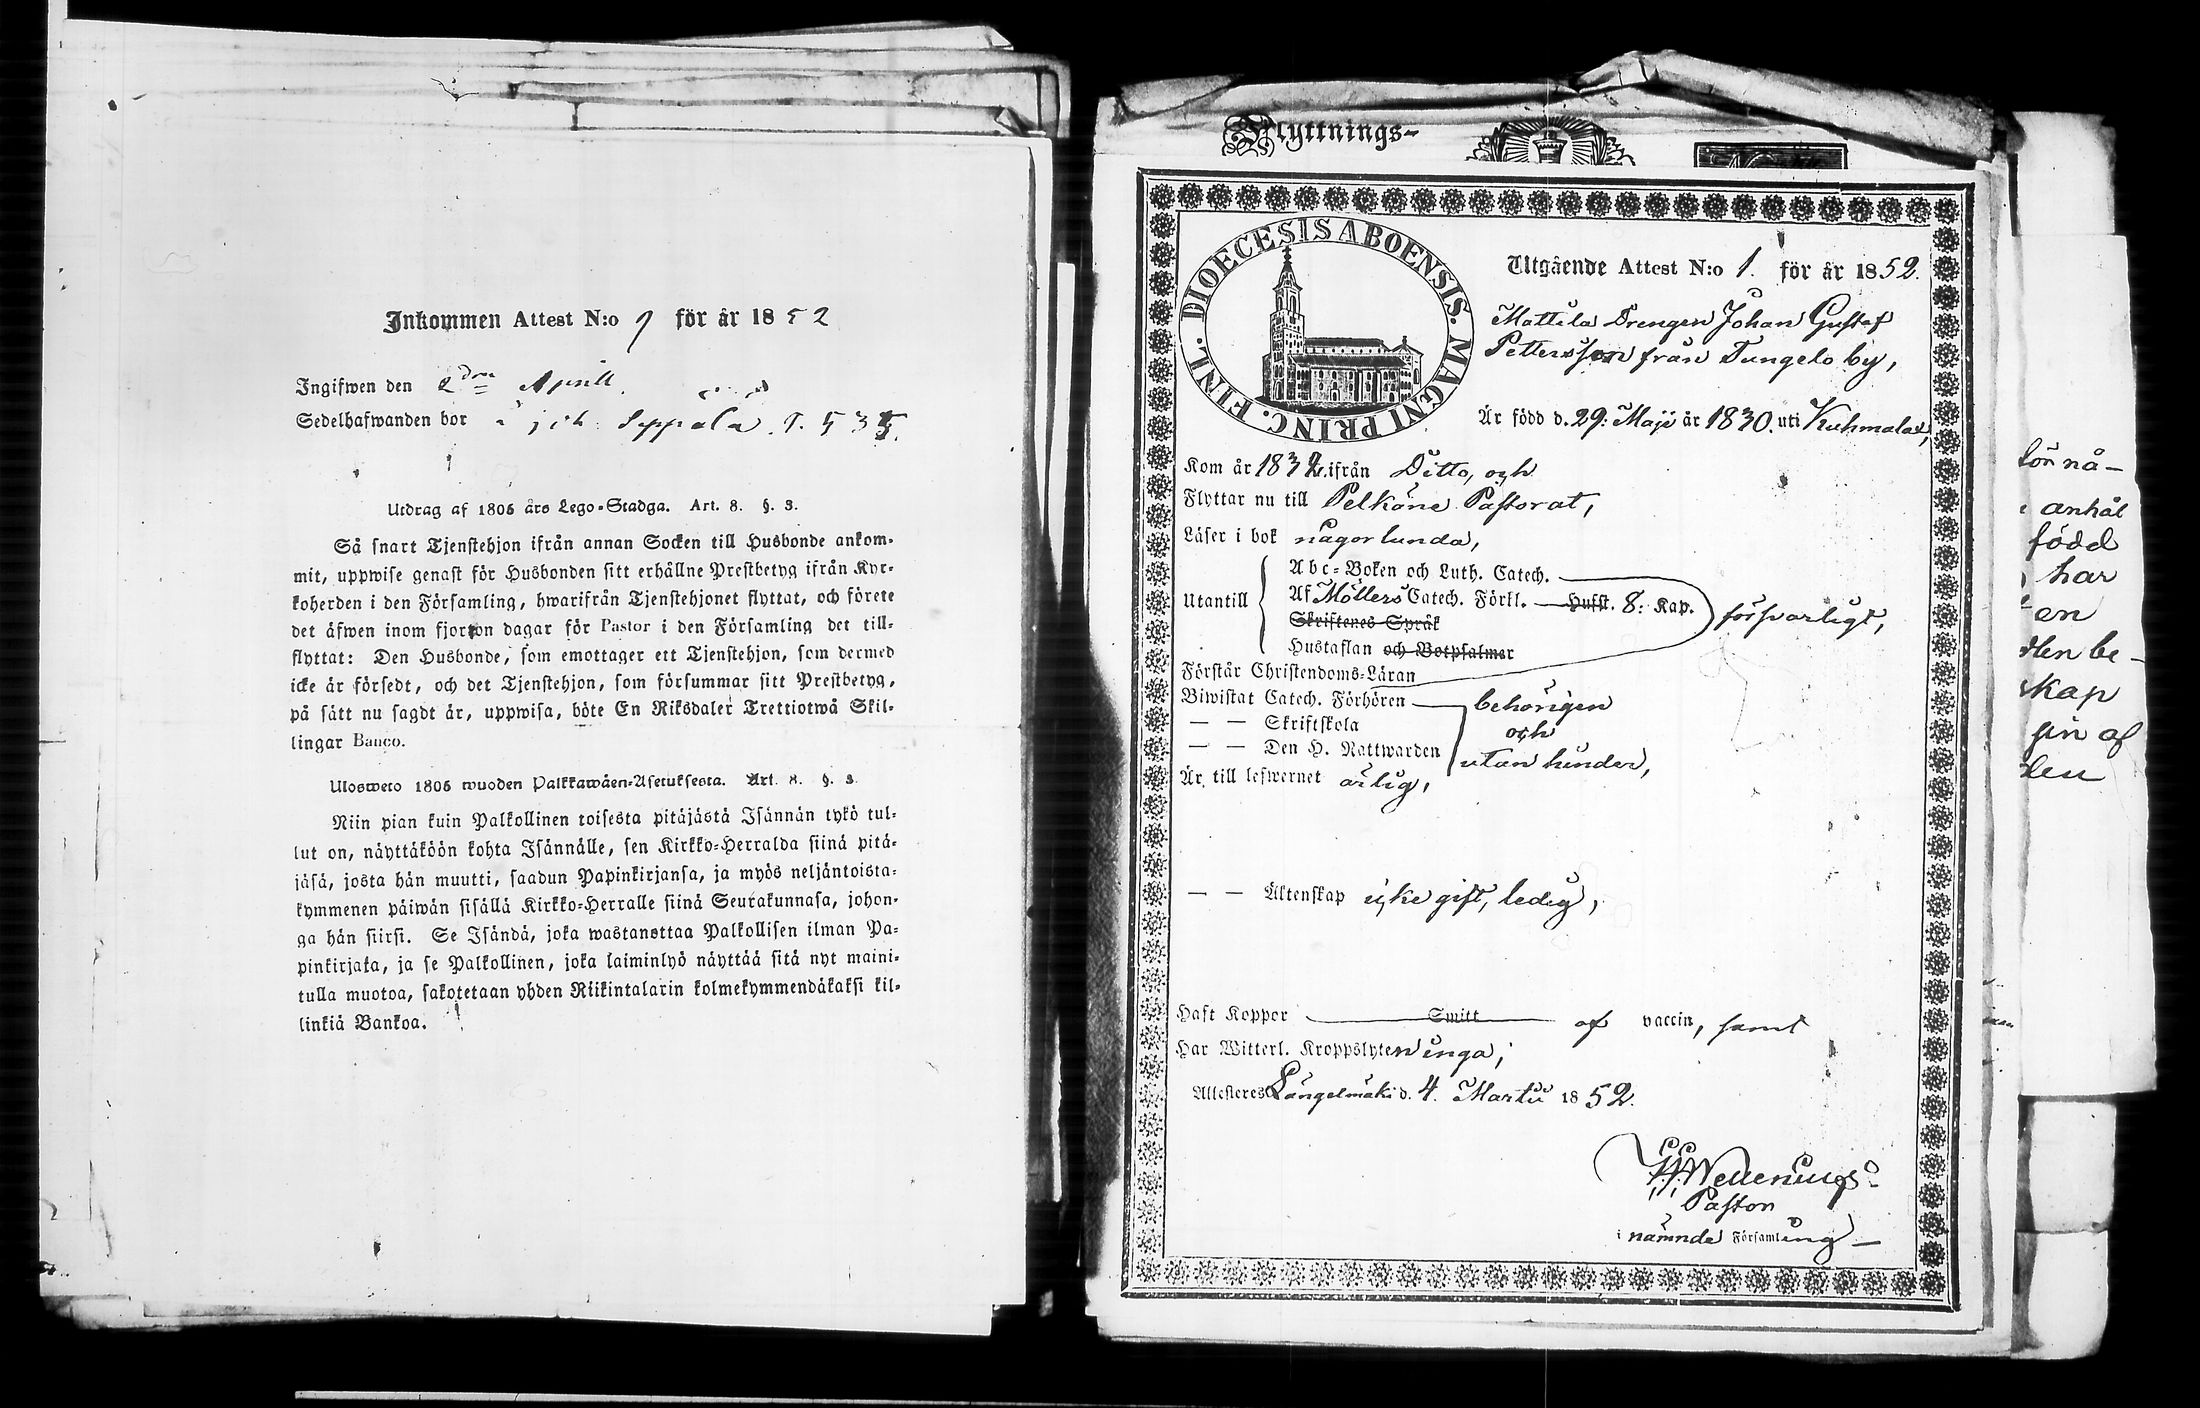 Inkommen Attest N:o 9 för år 1852
Ingifwen den 2dra Aprill.
Sedelhafwanden bor Seppälä
Utdrag af 1805 års Lego-Stadga. Art. 8. §. 3.
Så snart Tjenstehjon ifrån annan Socken till Husbonde ankom-
mit, uppwise genast för Husbonden sitt erhållne Prestbetyg ifrån Kyr-
koherden i den Församling, hwarifrån Tjenstehjonet flyttat, och förete
det äfwen inom fjorton dagar för Pastor i den Församling det till-
flyttat: Den Husbonde, som emottager ett Tjenstehjon, som dermed
icke är försedt, och det Tjenstehjon, som försummar sitt Prestbetyg,
på sätt nu sagdt är, uppwisa, böte En Riksdaler Trettiotwå Skil-
lingar Banco.
Ulosweto 1805 wuoden Palkkawäen-Asetuksesta. Art. 8. §. 3.
Niin pian kuin Palkollinen toisesta pitäjästä Isännän tykö tul-
lut on, näyttäköön kohta Isännälle, sen Kirkko-Herralda siinä pitä-
jäsä, josta hän muutti, saadun Papinkirjansa, ja myös neljäntoista-
kymmenen päiwän sisällä Kirkko-Herralle siinä Seurakunnasa, johon-
ga hän siirsi. Se Isändä, joka wastanottaa Palkollisen ilman Pa-
pinkirjata, ja se Palkollinen, joka laiminlyö näyttää sitä nyt maini-
tulla muotoa, sakotetaan yhden Riikintalarin kolmekymmendäkaksi kil-
linkiä Bankoa.
Flyttnings-
DIOECESIS ABOENSIS. MAGNI PRINC. FINL.
Utgående Attest N:o 1. för år 1852.
Mattila Drengen Johan Gustaf
Pettersson från Tungelo by,
Är född d. 29: Maji år 1830. uti Kuhmalax,
Kom år 1832. ifrån Ditto, och
Flyttar nu till Pelkäne Pastorat,
Läser i bok någorlunda,
Utantill
Abc-Boken och Luth. Catech.
Af Möllers Catech. Förkl. Husfl. 8: Kap.
Skriftenes Språk
försvarligt,
Hustaflan och Botpsalmer
Förstår Christendoms-Läran
Biwistat Catech. Förhören behörigen
— — Skriftskola och
— — Den H. Nattwarden utan hinder,
Är till lefwernet ärlig,
— — Äktenskap icke gift, ledig,
Haft Koppor Smitt af vaccin, samt
Har Witterl. Kroppslyten inga;
Attesteres Längelmäki d. 4. Martii 1852.
Pastor
i nämnde Församling
för nå-
anhål
född
har
en
be-
skap
af